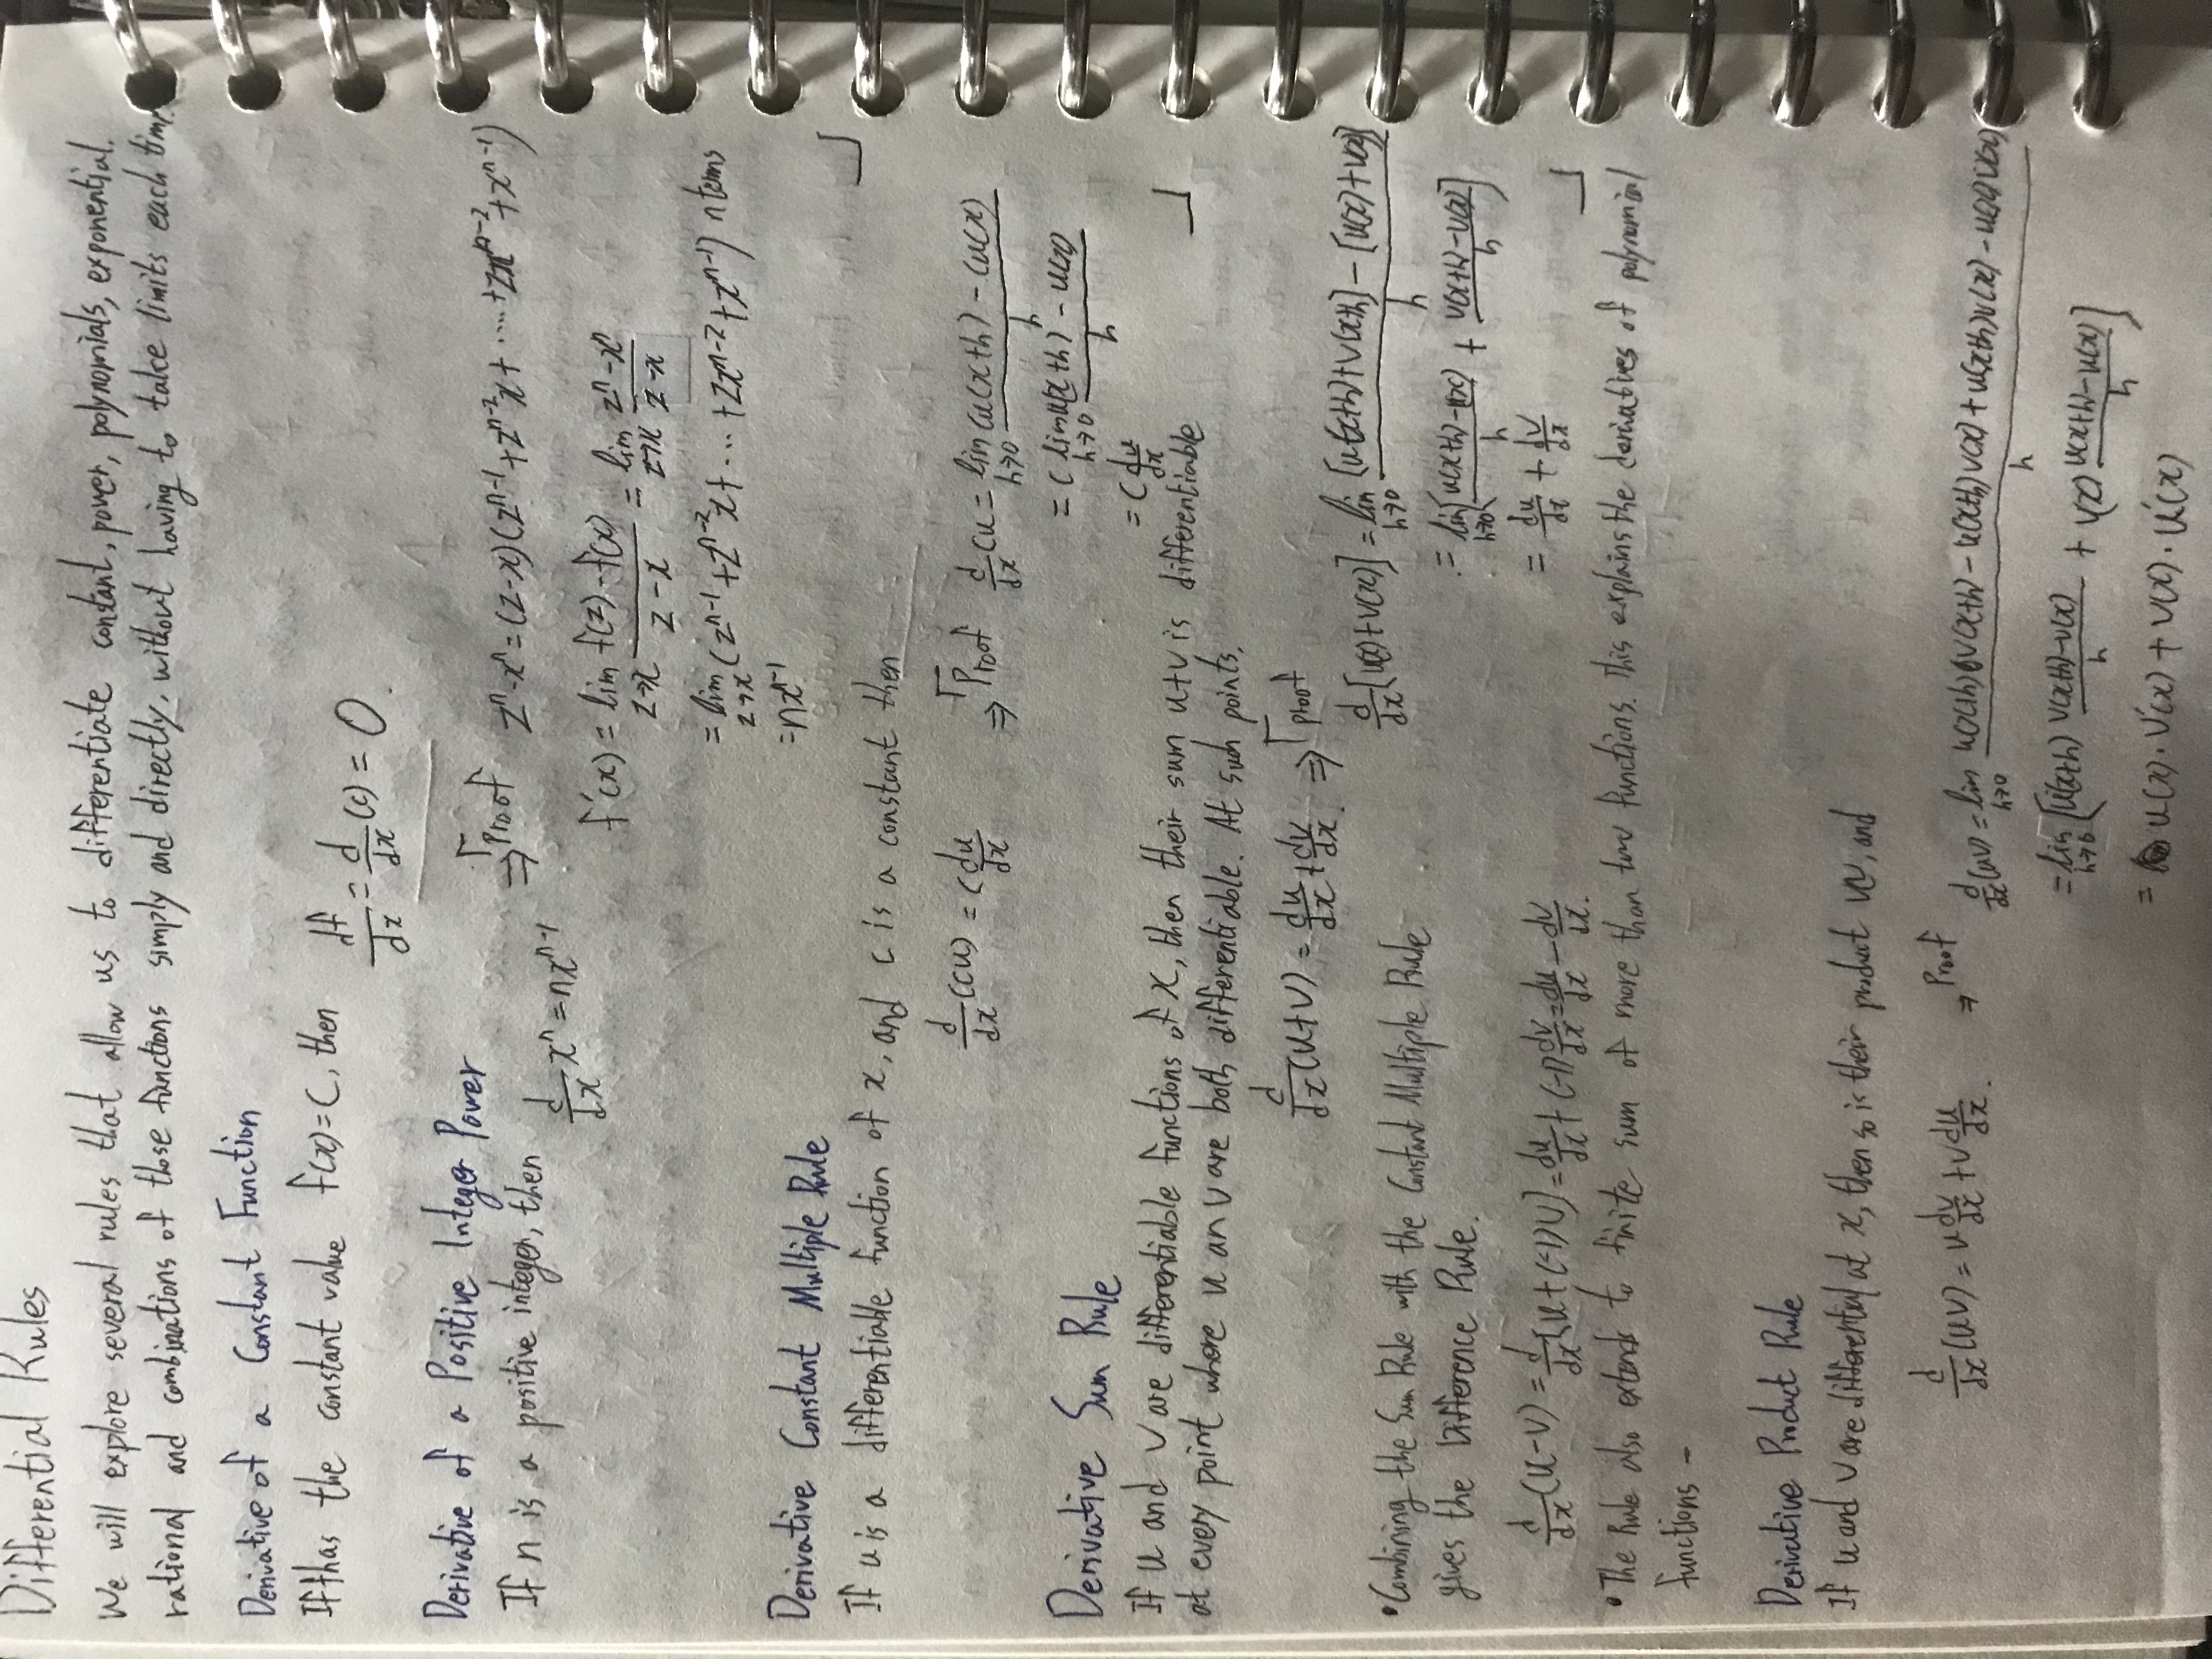 Differential Rules
We will explore several rules that allow us to differentiate constant, power, polynomials, exponential.
rational and combinations of those functions simply and directly, without having to take limits each time.
Derivative of a Constant Function
If f has the constant value f(x) = C, then df/dx = d/dx (c) = 0.
Derivative of a Positive Integer Power
If n is a positive integer, then
d/dx xⁿ = nxⁿ⁻¹
⇒ Proof
zⁿ-xⁿ = (z-x)(zⁿ⁻¹+zⁿ⁻²x+ ····· +zxⁿ⁻²+xⁿ⁻¹)
f'(x) = lim z→x f(z)-f(x) / z-x = lim z→x zⁿ-xⁿ / z-x
= lim z→x (zⁿ⁻¹+zⁿ⁻²x+ ... +zxⁿ⁻²+xⁿ⁻¹) n terms
= nxⁿ⁻¹
Derivative Constant Multiple Rule
If u is a differentiable function of x, and c is a constant then
d/dx (cu) = c du/dx
⇒ Proof d/dx cu = lim h→0 cu(x+h) - cu(x) / h
= c lim h→0 u(x+h) - u(x) / h
= c du/dx
Derivative Sum Rule
If u and v are differentiable functions of x, then their sum u+v is differentiable
at every point where u an v are both differentiable. At such points,
d/dx (u+v) = du/dx + dv/dx. ⇒ proof
d/dx [u(x)+v(x)] = lim h→0 [u(x+h)+v(x+h)] - [u(x)+v(x)] / h
= lim h→0 [u(x+h)-u(x) / h + v(x+h)-v(x) / h]
= du/dx + dv/dx
• Combining the Sum Rule with the Constant Multiple Rule
gives the Difference Rule.
d/dx (u-v) = d/dx [u+(-1)v] = du/dx + (-1) dv/dx = du/dx - dv/dx.
• The Rule also extends to finite sum of more than two functions. This explains the derivatives of polynomial
functions -
Derivative Product Rule
If u and v are differential at x, then so is their product uv, and
d/dx (uv) = u dv/dx + v du/dx. ⇒ Proof
d/dx (uv) = lim h→0 u(x+h)v(x+h) - u(x+h)v(x) + u(x+h)v(x) - u(x)v(x) / h
= lim h→0 [u(x+h) v(x+h)-v(x) / h + v(x) u(x+h)-u(x) / h]
= u(x)·v'(x) + v(x)·u'(x)